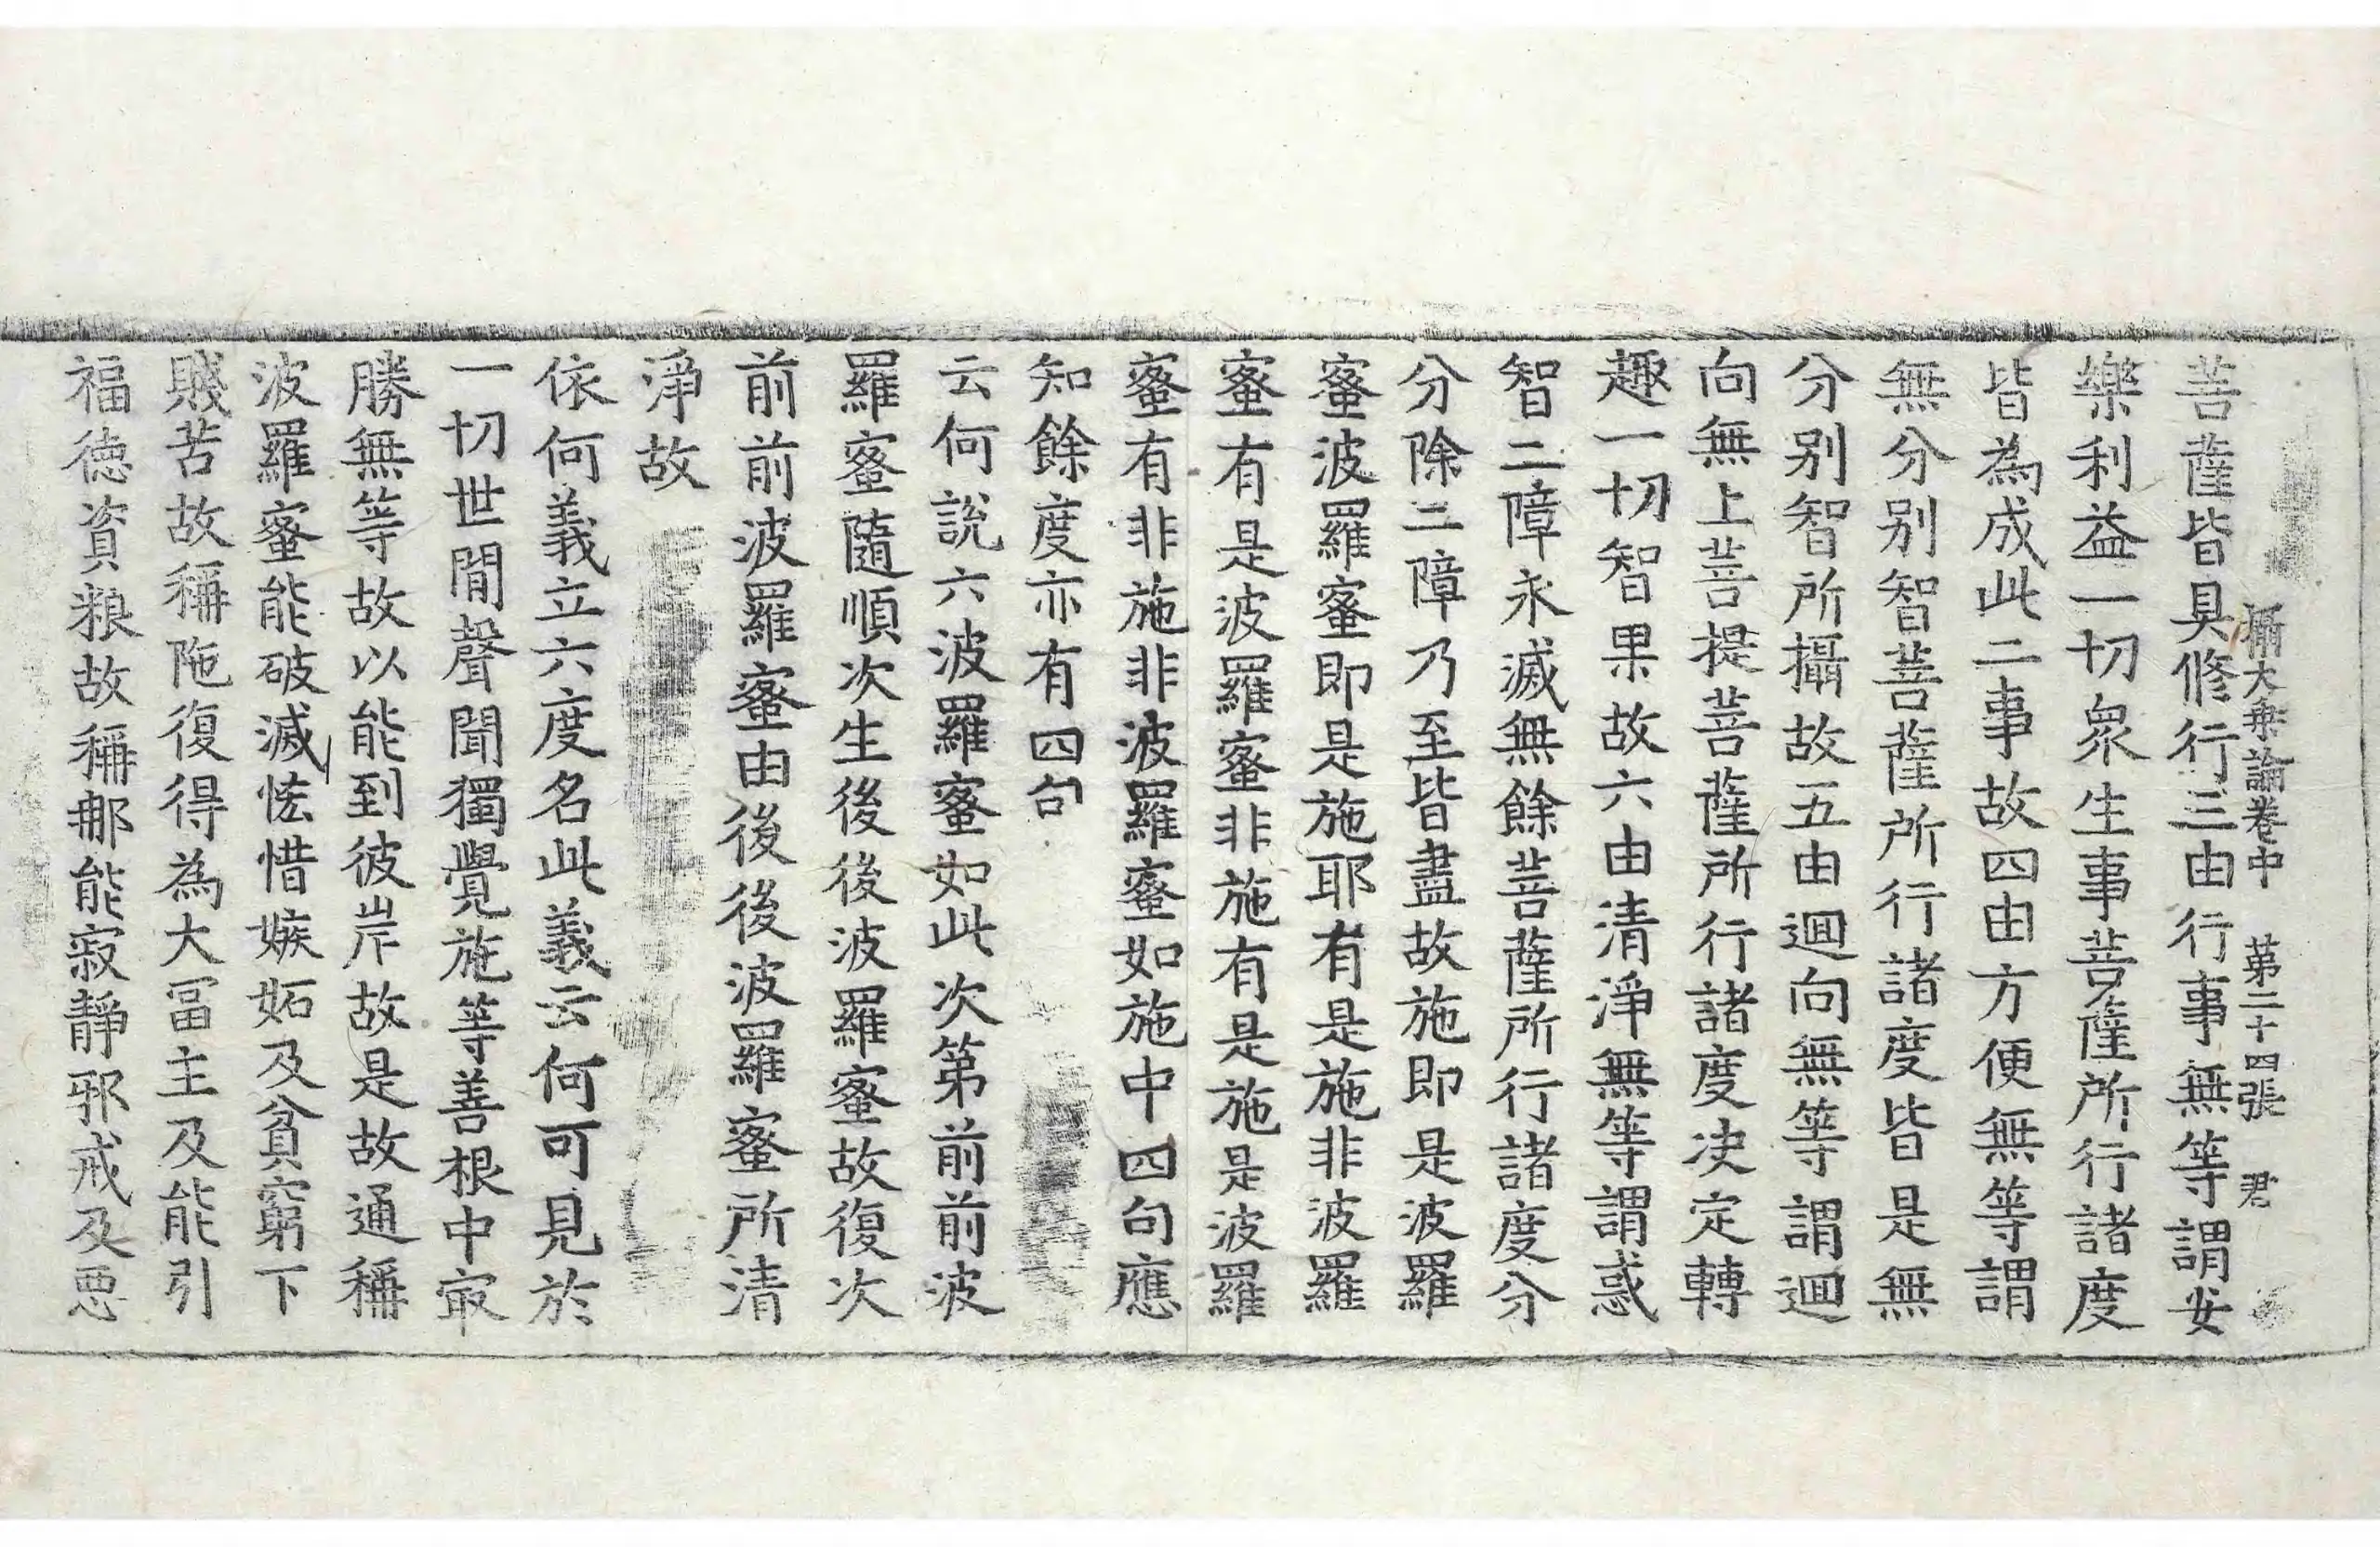 攝大乗論卷中　第二十四張　君
菩薩皆具修行三由行事無等謂安
樂利益一切衆生事菩薩所行諸度
皆為成此二事故四由方便無等謂
無分别智菩薩所行諸度皆是無
分别智所攝故五由迴向無等謂迴
向無上菩提菩薩所行諸度决定轉
趣一切智果故六由清淨無等謂惑
智二障永滅無餘菩薩所行諸度分
分除二障乃至皆盡故施即是波羅
蜜波羅蜜即是施耶有是施非波羅
蜜有是波羅蜜非施有是施是波羅
蜜有非施非波羅蜜如施中四句應
知餘度亦有四句
云何說六波羅蜜如此次第前前波
羅蜜隨順次生後後波羅蜜故復次
前前波羅蜜由後後波羅蜜所清
淨故
依何義立六度名此義云何可見於
一切世間聲聞獨覺施等善根中㝡
勝無等故以能到彼岸故是故通稱
波羅蜜能破滅恡惜嫉妬及貧窮下
賤苦故稱陁復得為大冨主及能引
福德資粮故稱䣯能寂靜邪戒及惡